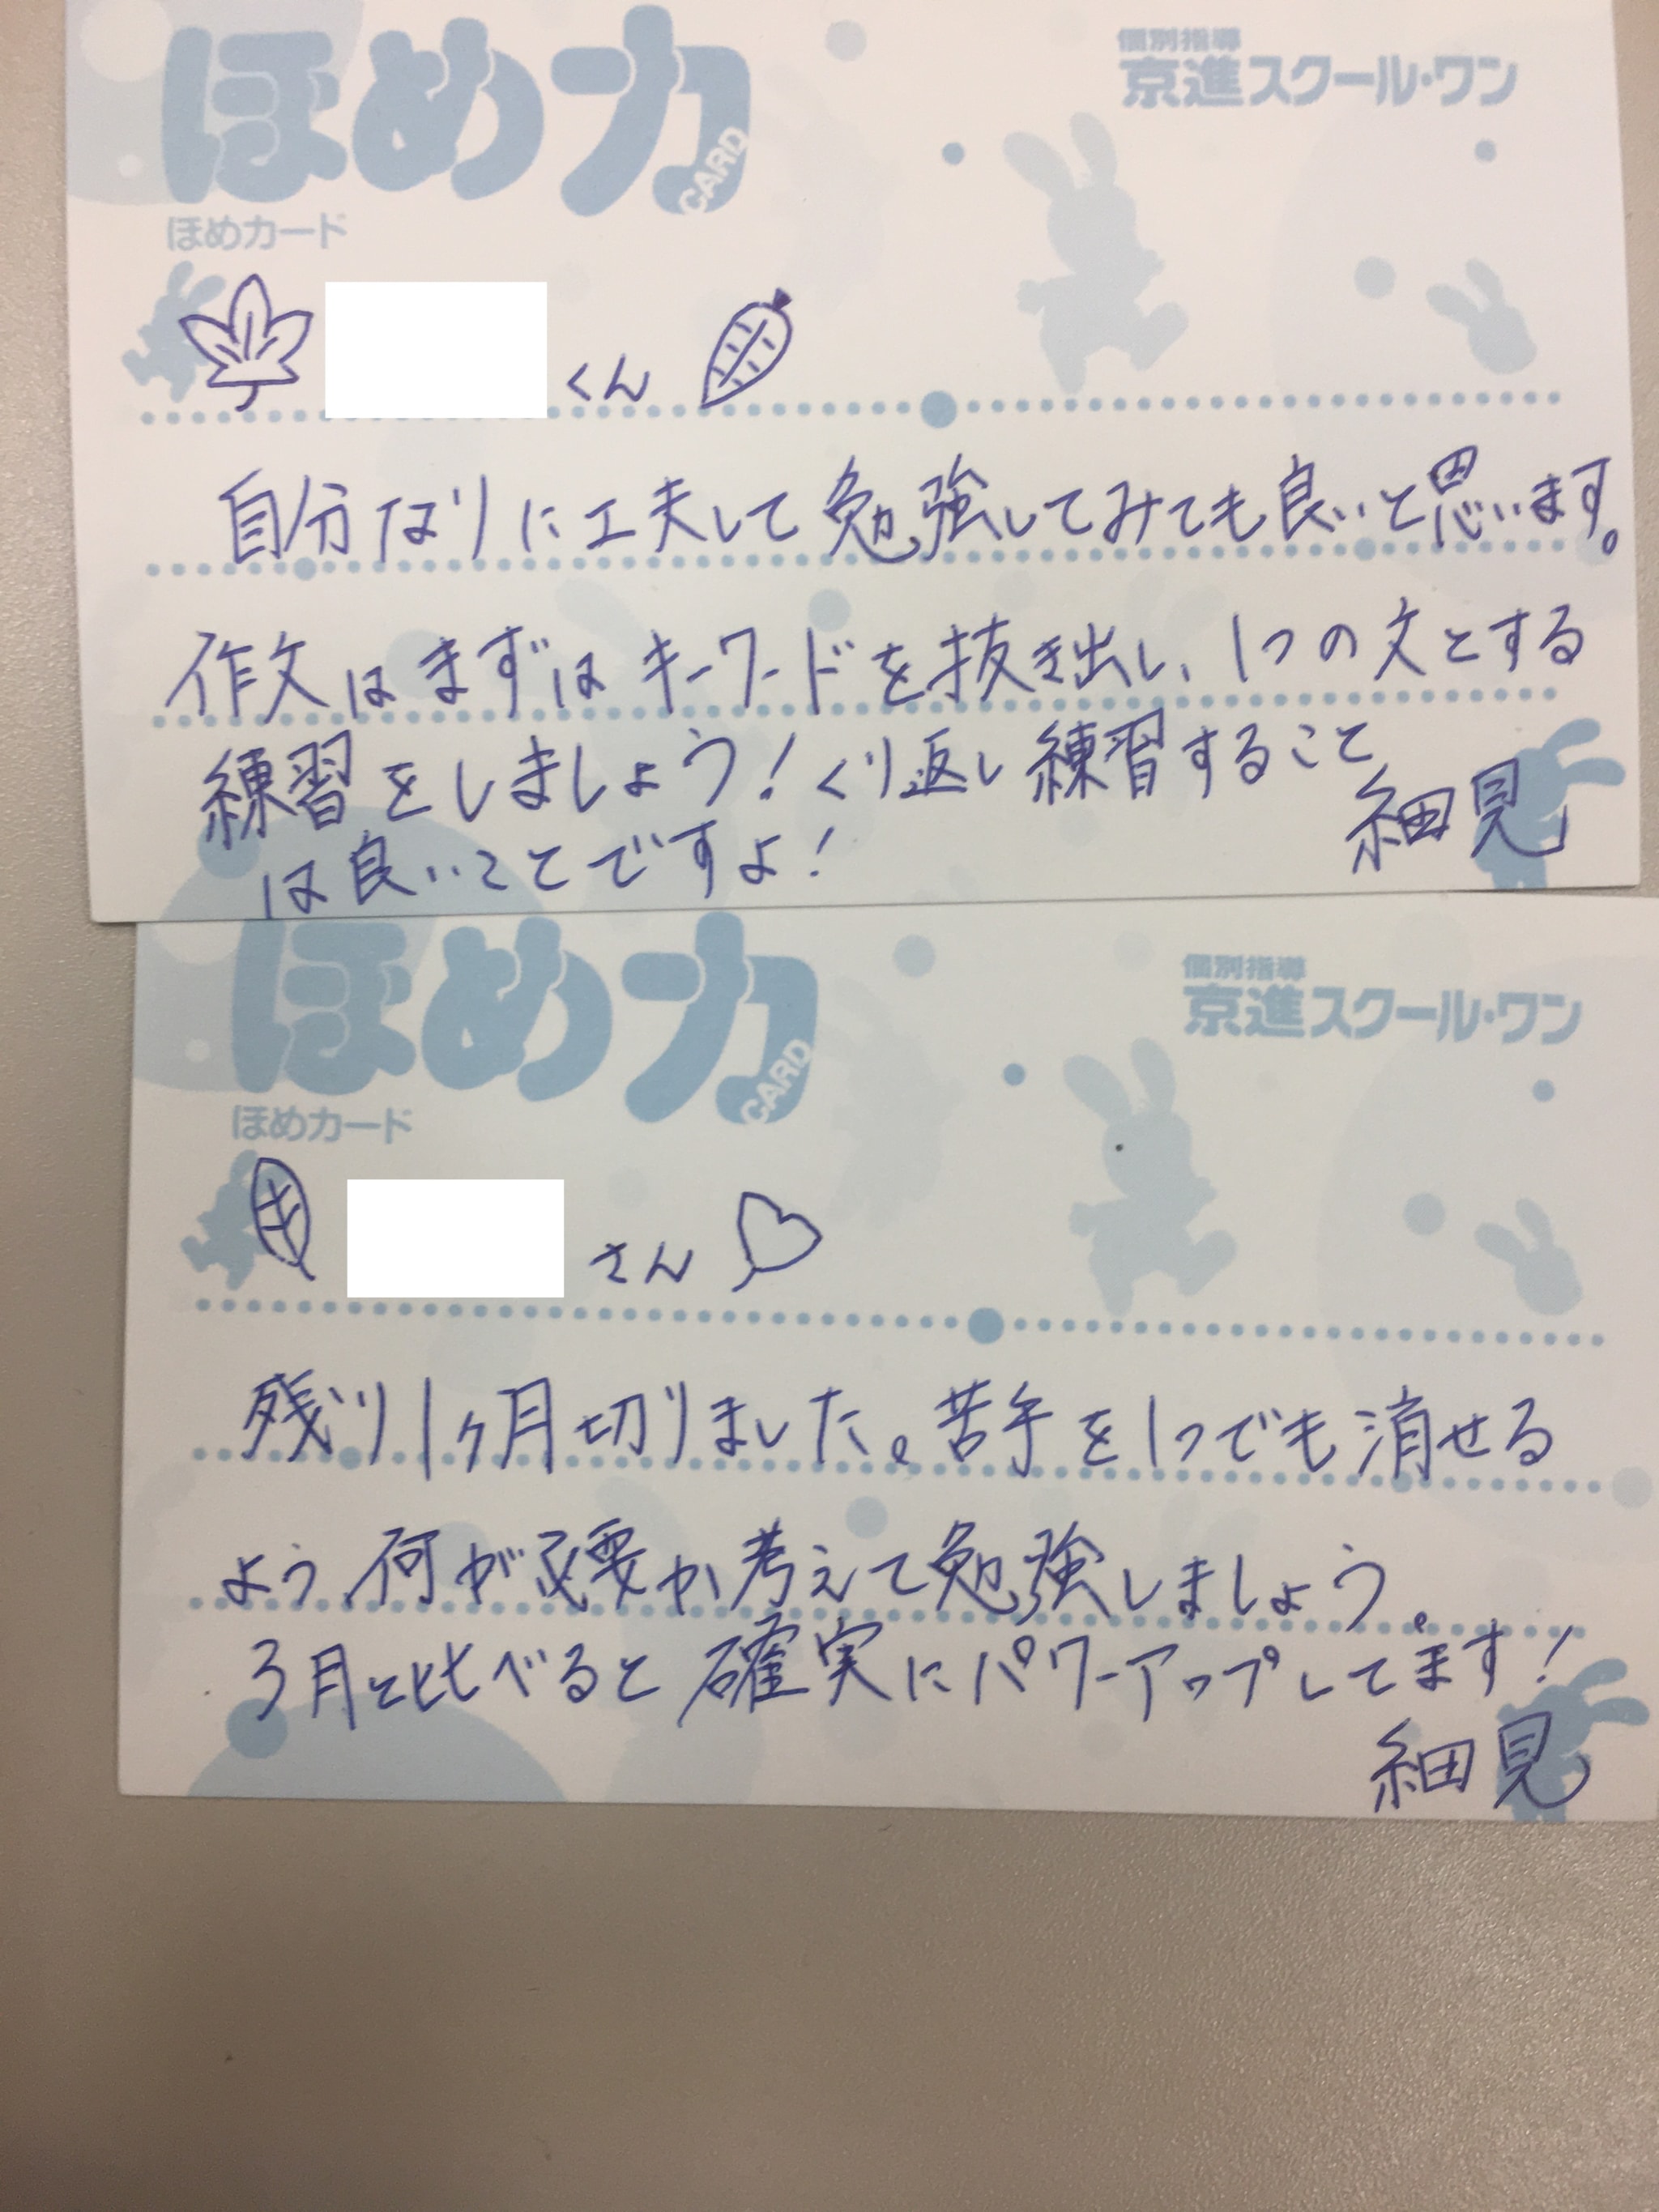 ほめ力
CARD
ほめカード
個別指導
京進スクール・ワン
くん
自分なりに工夫して勉強してみても良いと思います。
作文はまずはキーワードを抜き出し、1つの文とする
練習をしましょう！くり返し練習すること
は良いことですよ！
細見
ほめ力
CARD
ほめカード
個別指導
京進スクール・ワン
さん
残り1ヶ月切りました。苦手を1つでも消せる
よう、何が必要か考えて勉強しましょう。
3月と比べると確実にパワーアップしてます！
細見